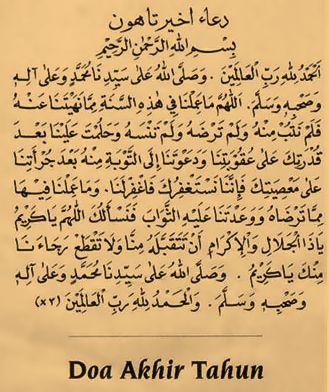 دعاء اخير تاهون
بِسْمِ اللهِ الرَّحْمٰنِ الرَّحِيْمِ
اَلْحَمْدُ لِلهِ رَبِّ الْعَالَمِيْنَ . وَصَلَّى اللهُ عَلَى سَيِّدِنَا مُحَمَّدٍ وَعَلَى آلِهِ
وَصَحْبِهِ وَسَلَّمَ . اَللّٰهُمَّ مَاعَمِلْنَا فِي هٰذِهِ السَّنَةِ مِمَّا نَهَيْتَنَا عَنْهُ
فَلَمْ نَتُبْ مِنْهُ وَلَمْ تَرْضَهُ وَلَمْ تَنْسَهُ وَحَلُمْتَ عَلَيْنَا بَعْدَ
قُدْرَتِكَ عَلَى عُقُوْبَتِنَا وَدَعَوْتَنَا إِلَى التَّوْبَةِ مِنْهُ بَعْدَ جُرْأَتِنَا
عَلَى مَعْصِيَتِكَ فَإِنَّنَا نَسْتَغْفِرُكَ فَاغْفِرْلَنَا . وَمَا عَمِلْنَا فِيْهَا
مِمَّا تَرْضَاهُ وَوَعَدْتَنَا عَلَيْهِ الثَّوَابَ فَنَسْأَلُكَ اللّٰهُمَّ يَاكَرِيْمُ
يَاذَا الْجَلَالِ وَالْإِكْرَامِ أَنْ تَتَقَبَّلَهُ مِنَّا وَلَا تَقْطَعْ رَجَاءَنَا
مِنْكَ يَاكَرِيْمُ . وَصَلَّى اللهُ عَلَى سَيِّدِنَا مُحَمَّدٍ وَعَلَى آلِهِ
وَصَحْبِهِ وَسَلَّمَ . وَالْحَمْدُ لِلهِ رَبِّ الْعَالَمِيْنَ (×٣)
Doa Akhir Tahun